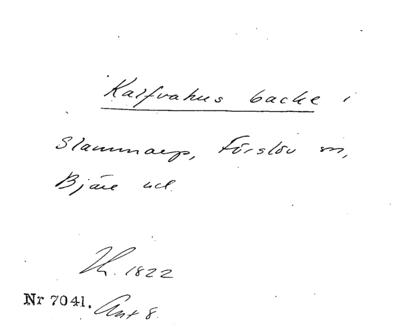 Kalfvahus backe i
Slammarp, Förslöv sn,
Bjäre hd.
Th. 1822
Nr 7041. Ant 8.